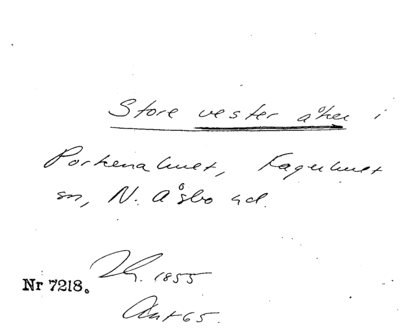 Store vester åker i
Porkenahult, Fagerhult
sn, N. Åsbo hd.
Nr 7218. Th. 1855
Akt 65.